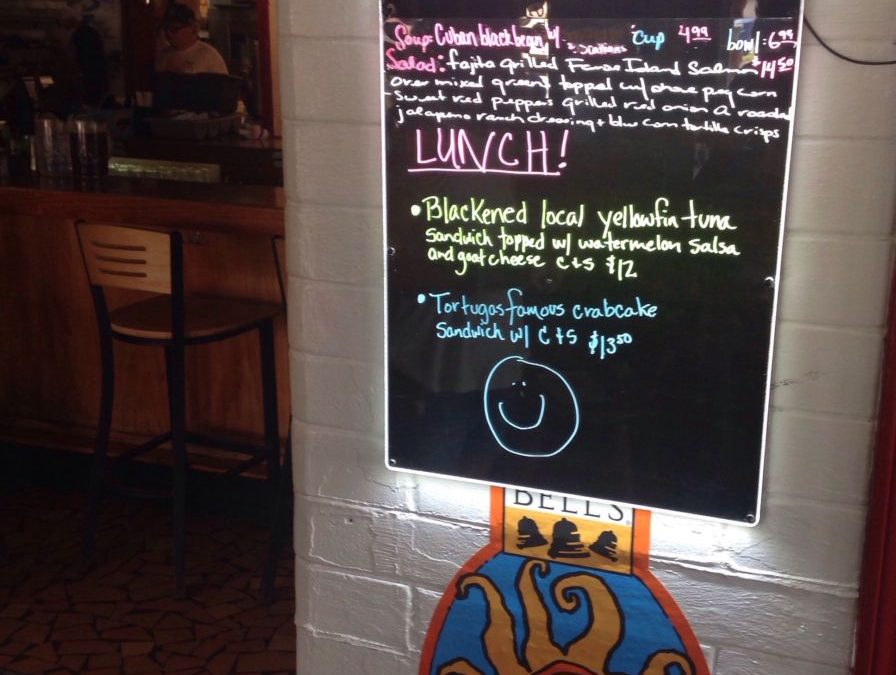 Soup: Cuban black bean w/ scallions cup 4.99 bowl: 6.99
Salad: fajita grilled Faroe Island Salmon $14.50
over mixed greens topped w/
sweet red peppers grilled red onion a roasted
jalapeno ranch dressing + blue corn tortilla crisps
LUNCH!
• Blackened local yellowfin tuna
Sandwich topped w/ watermelon salsa
and goat cheese C+S $12
• Tortugas famous crabcake
Sandwich w/ C+S $13.50
BELL'S